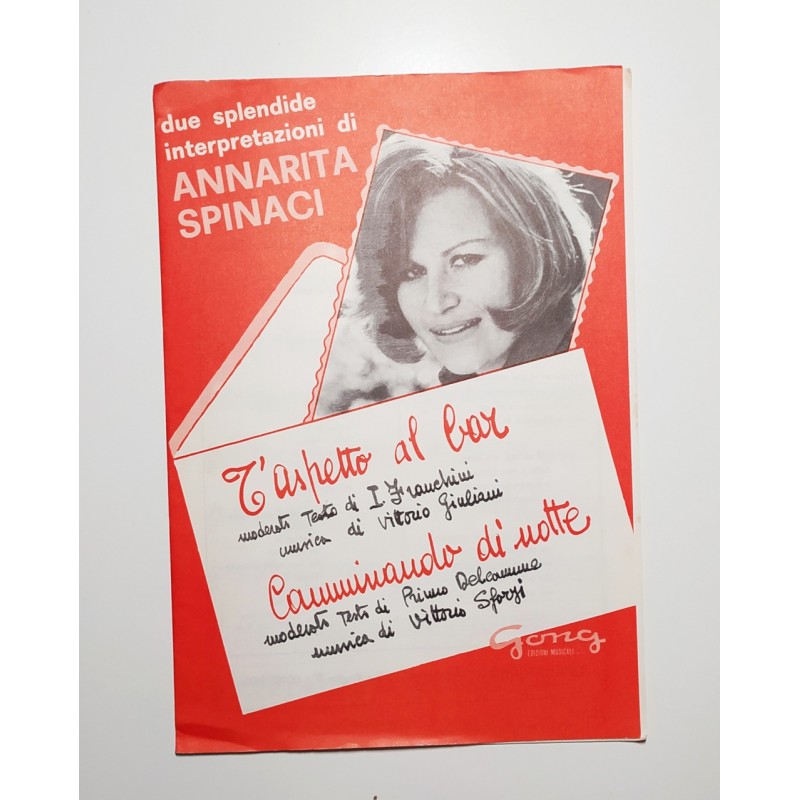 due splendide
interpretazioni di
ANNARITA
SPINACI
T'aspetto al bar
moderato Testo di I. Franchini
musica di Vittorio Giuliani
Camminando di notte
moderato Testo di Primo Delcomune
musica di Vittorio Sforzi
Gong
EDIZIONI MUSICALI